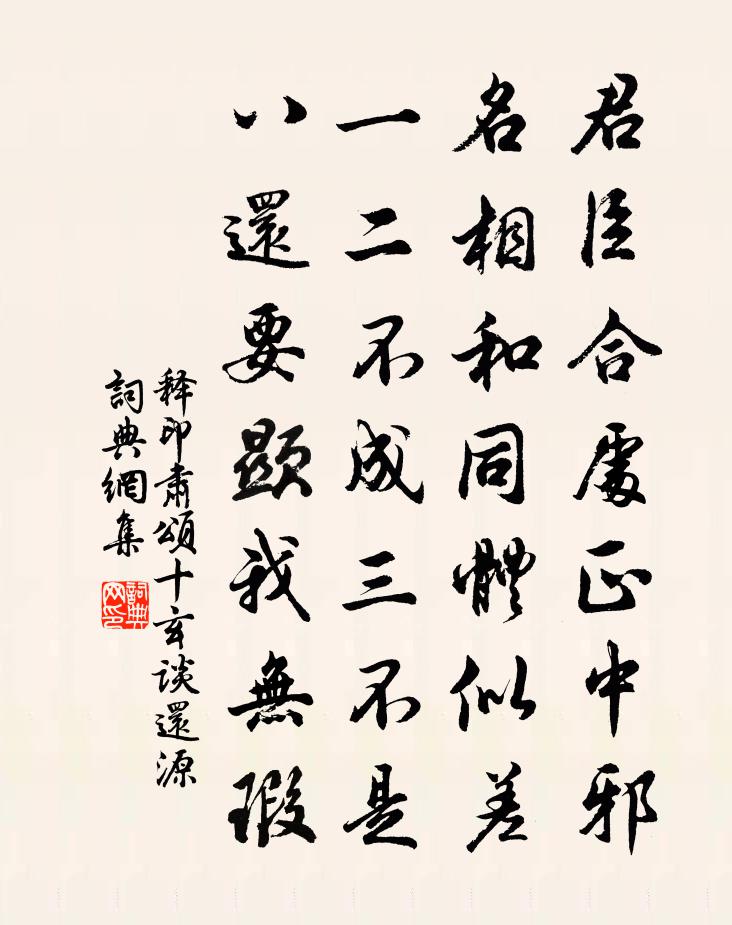 君臣合處正中邪
名相和同體似差
一二不成三不是
八還要顯我無瑕
释印肅頌十玄談還源
詞典網集
詞典网印